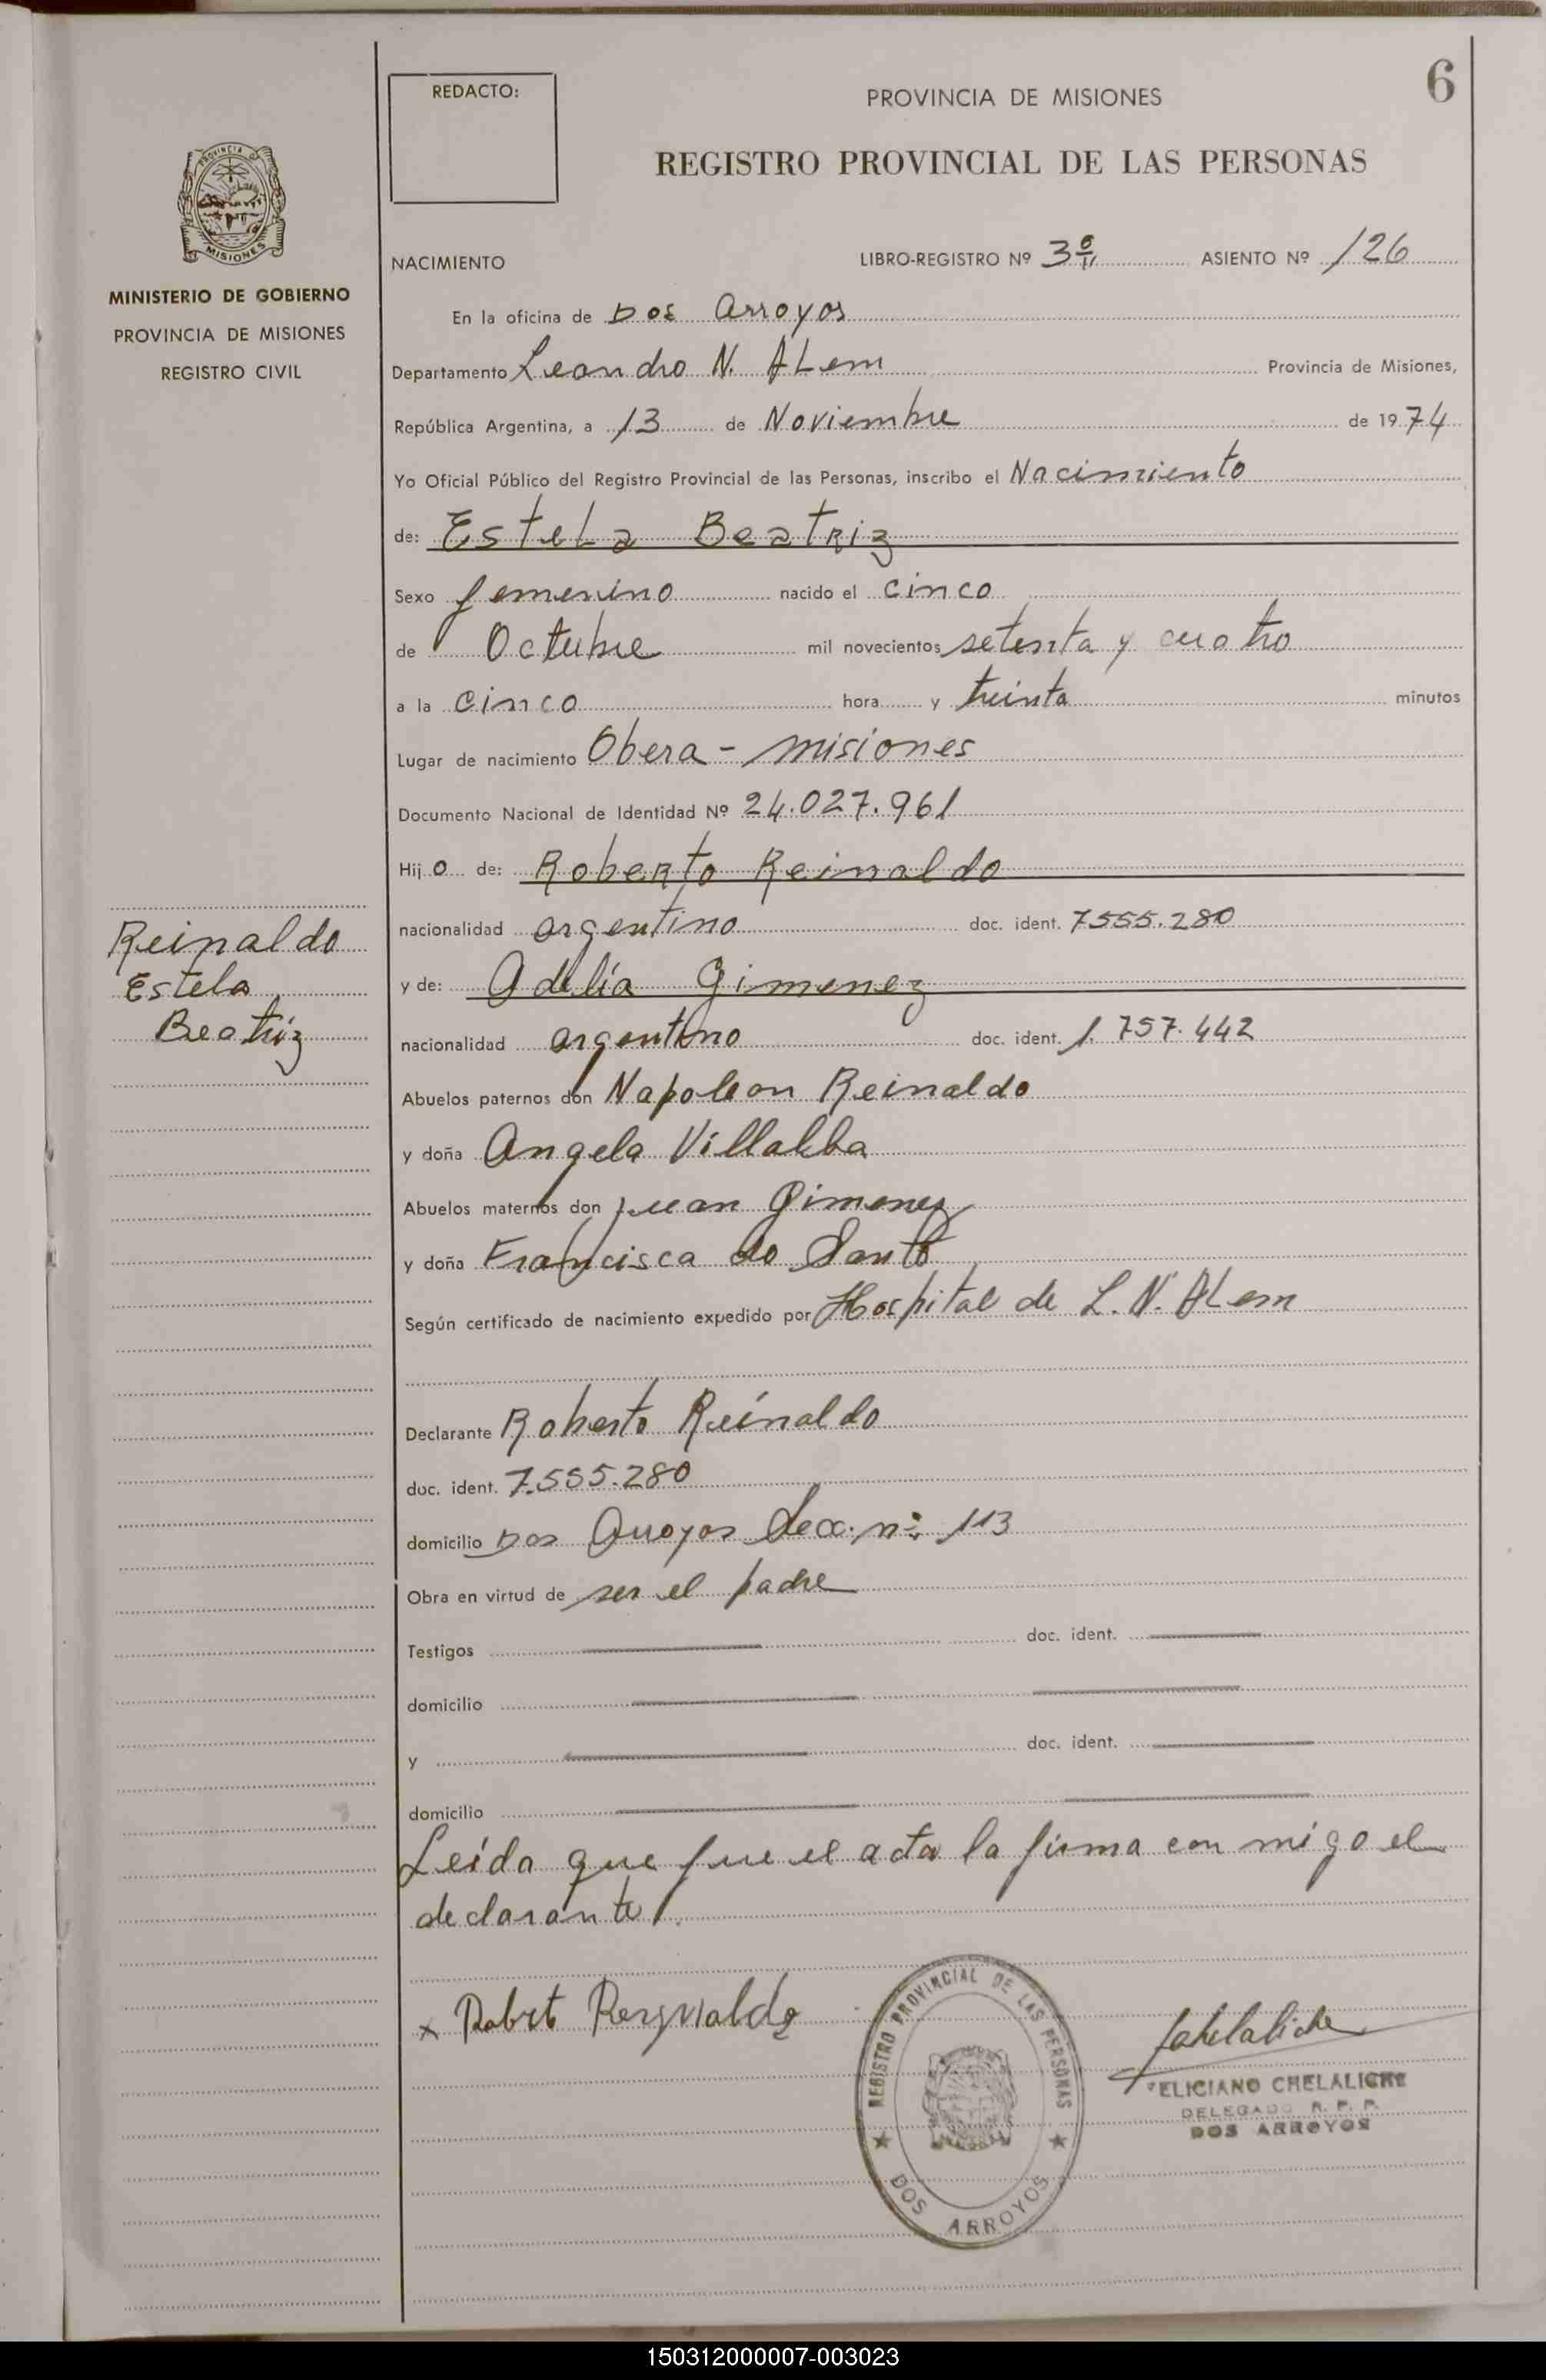 6
REDACTO:
PROVINCIA DE MISIONES
REGISTRO PROVINCIAL DE LAS PERSONAS
PROVINCIA DE
MISIONES
MINISTERIO DE GOBIERNO
PROVINCIA DE MISIONES
REGISTRO CIVIL
NACIMIENTO LIBRO-REGISTRO Nº 3º ASIENTO Nº 126
En la oficina de Dos Arroyos
Departamento Leandro N. ALem Provincia de Misiones,
República Argentina, a 13 de Noviembre de 1974
Yo Oficial Público del Registro Provincial de las Personas, inscribo el Nacimiento
de: EsteLa Beatriz
Sexo femenino nacido el cinco
de Octubre mil novecientos setenta y cuatro
a la cinco hora y treinta minutos
Lugar de nacimiento Obera - misiones
Documento Nacional de Identidad Nº 24.027.961
Hijo de: Roberto Reinaldo
nacionalidad argentino doc. ident. 7555.280
y de: Adelia Gimenez
nacionalidad argentino doc. ident. 1.757.442
Abuelos paternos don Napoleon Reinaldo
y doña Angela Villalba
Abuelos maternos don Juan Gimenez
y doña Francisca do Santo
Según certificado de nacimiento expedido por Hospital de L. N. ALem
Declarante Roberto Reinaldo
doc. ident. 7.555.280
domicilio Dos Arroyos Secc. nº 113
Obra en virtud de ser el padre
Testigos doc. ident.
domicilio
y doc. ident.
domicilio
Leída que fue el acta la firma con migo el
declarante.
Reinaldo
Estela
Beatriz
x
REGISTRO PROVINCIAL DE LAS PERSONAS
DOS ARROYOS
FELICIANO CHELALICHE
DELEGADO R. P. P.
DOS ARROYOS
150312000007-003023